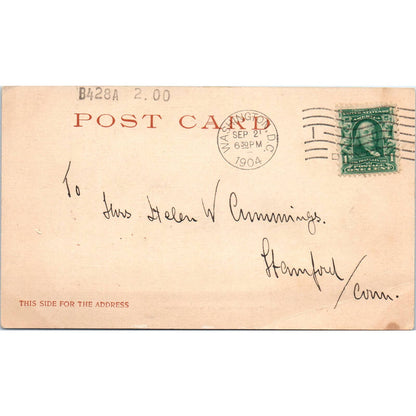 B428A 2.00
POST CARD
WASHINGTON, D.C.
SEP 21
6 30 PM
1904
To
Mrs Helen W Cummings.
Stamford
Conn.
THIS SIDE FOR THE ADDRESS